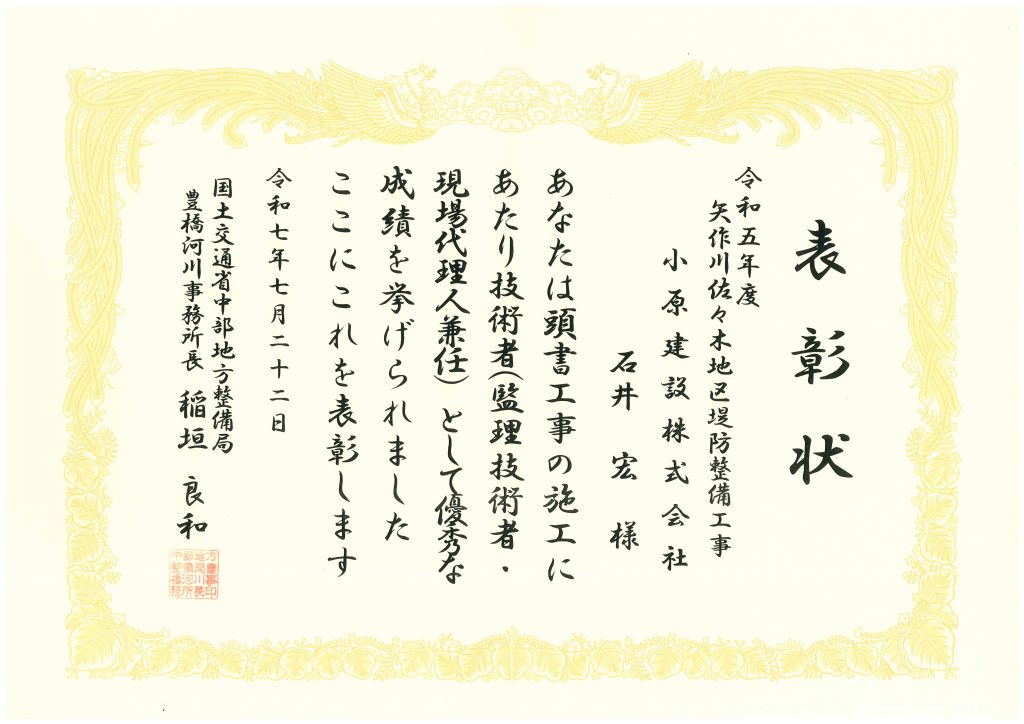 表彰状
令和五年度
矢作川佐々木地区堤防整備工事
小原建設株式会社
石井宏様
あなたは頭書工事の施工に
あたり技術者(監理技術者・
現場代理人兼任)として優秀な
成績を挙げられました
ここにこれを表彰します
令和七年七月二十二日
国土交通省中部地方整備局
豊橋河川事務所長 稲垣良和